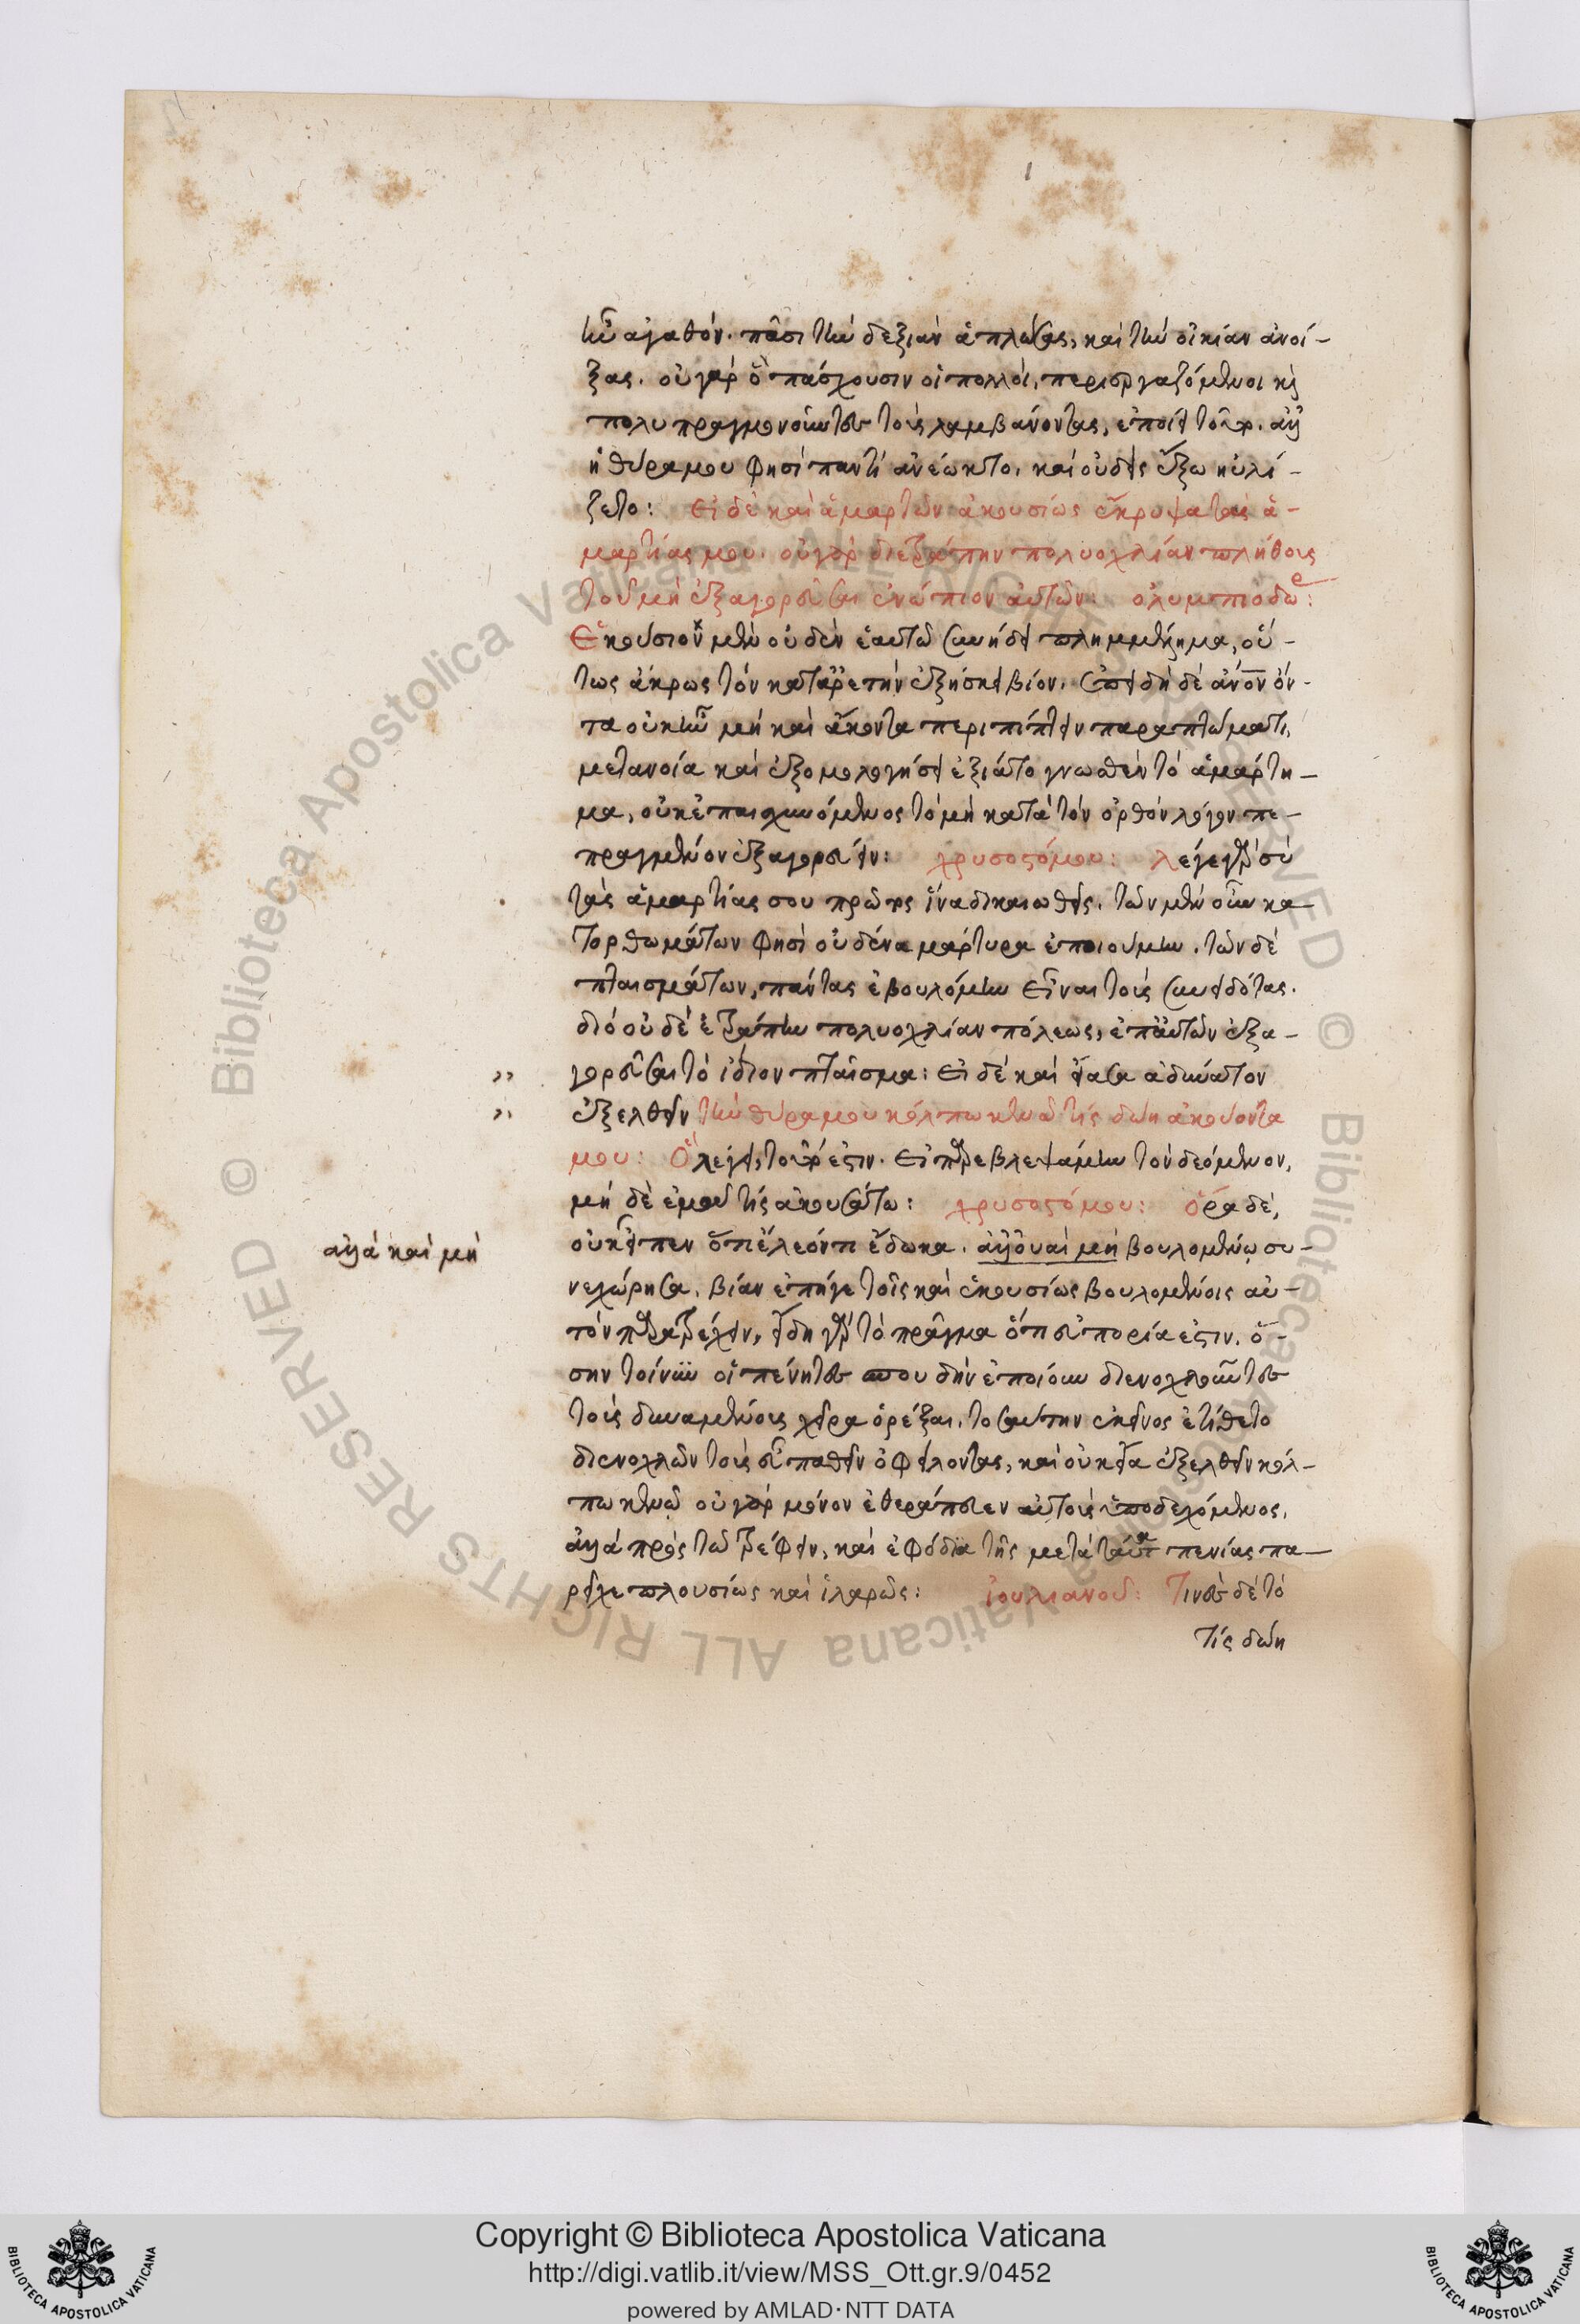 ἦν ἀγαθόν. πᾶσι τὴν δεξιὰν ἁπλώσας, καὶ τὴν οἰκίαν ἀνοί-
ξας. οὐ γὰρ ὃ πάσχουσιν οἱ πολλοί, περιεργαζόμενοι καὶ
πολυπραγμονοῦντες τοὺς λαμβάνοντας, ἐποίει τοῦτο. ἀλλ'
ἡ θύρα μου φησὶ παντὶ ἀνέωκτο. καὶ οὐδεὶς ἔξω ηὐλί-
ζετο: Εἰ δὲ καὶ ἁμαρτὼν ἀκουσίως ἔκρυψα τὰς ἁ-
μαρτίας μου. οὐ γὰρ διετράπην πολυοχλίαν πλήθους
τοῦ μὴ ἐξαγορεῦσαι ἐνώπιον αὐτῶν: ολυμπιοδώρ:
Ἑκούσιον μὲν οὐδὲν ἑαυτῷ συνῄδει πλημμέλημα, οὕ-
τως ἄκρως τὸν κατ' ἀρετὴν ἐξήσκει βίον. ἐπειδὴ δὲ ἄνον ὄν-
τα οὐκ ἦν μὴ καὶ ἄκοντα περιπίπτειν παραπτώματι,
μετανοία καὶ ἐξομολογήσει ἐξιᾶτο γνωσθὲν τὸ ἁμάρτη-
μα, οὐκ ἐπαισχυνόμενος τὸ μὴ κατὰ τὸν ὀρθὸν λόγον πε-
πραγμένον ἐξαγορεύειν: χρυσοστόμου: λέγε γὰρ σὺ
τὰς ἁμαρτίας σου πρῶτος ἵνα δικαιωθῇς. τῶν μὲν οὖν κα-
τορθωμάτων φησὶ οὐδένα μάρτυρα ἐποιούμην. τῶν δὲ
πταισμάτων, πάντας ἐβουλόμην εἶναι τοὺς συνειδότας.
διὸ οὐδὲ ἐτράπην πολυοχλίαν πόλεως, ἐπ' αὐτῶν ἐξα-
,, γορεῦσαι τὸ ἴδιον πταῖσμα: Εἰ δὲ καὶ εἴασα ἀδύνατον
,, ἐξελθεῖν τὴν θύραμου κόλπω κενῶ τίς δώη ἀκούοντα
μου: Ὃ λέγει, τοῦτό ἐστιν. εἰ παρεβλεψάμην τὸν δεόμενον,
μὴ δὲ ἐμοῦ τίς ἀκουσάτω: χρυσοστόμου: ὅρα δὲ,
ἀλλὰ καὶ μὴ
οὐκ εἶπεν ὅτι ἔλεόν τι ἔδωκα. ἀλλ' οὐαὶ μὴ βουλομένω συ-
νεχώρησα. βίαν ἐπῆγε τοῖς καὶ ἑκουσίως βουλομένοις αὐ-
τὸν παρατρέχειν, ᾔδει γὰρ τὸ πρᾶγμα ὅτι εὐπορία ἐστιν. ὅ-
σην τοίνυν οἱ πένητες σπουδὴν ἐποίουν διενοχλοῦντες
τοῖς δυναμένοις χεῖρα ὀρέξαι. τοσαύτην ἐκεῖνος ἐτίθετο
διενοχλῶν τοὺς εὖ παθεῖν ὀφείλοντας, καὶ οὐκ εἴα ἐξελθεῖν κόλ-
πω κενῶ οὐ γὰρ μόνον ἐθεράπευεν αὐτοὺς ὑποδεχόμενος.
ἀλλὰ πρὸς τῶ τρέφειν, καὶ ἐφόδια τῆς μετὰ ταῦτα πενίας πα-
ρεῖχε πλουσίως καὶ ἱλαρῶς: ἰουλιανοῦ: Τινὲς δὲ τὸ
τίς δώη
Copyright © Biblioteca Apostolica Vaticana
http://digi.vatlib.it/view/MSS_Ott.gr.9/0452
powered by AMLAD·NTT DATA